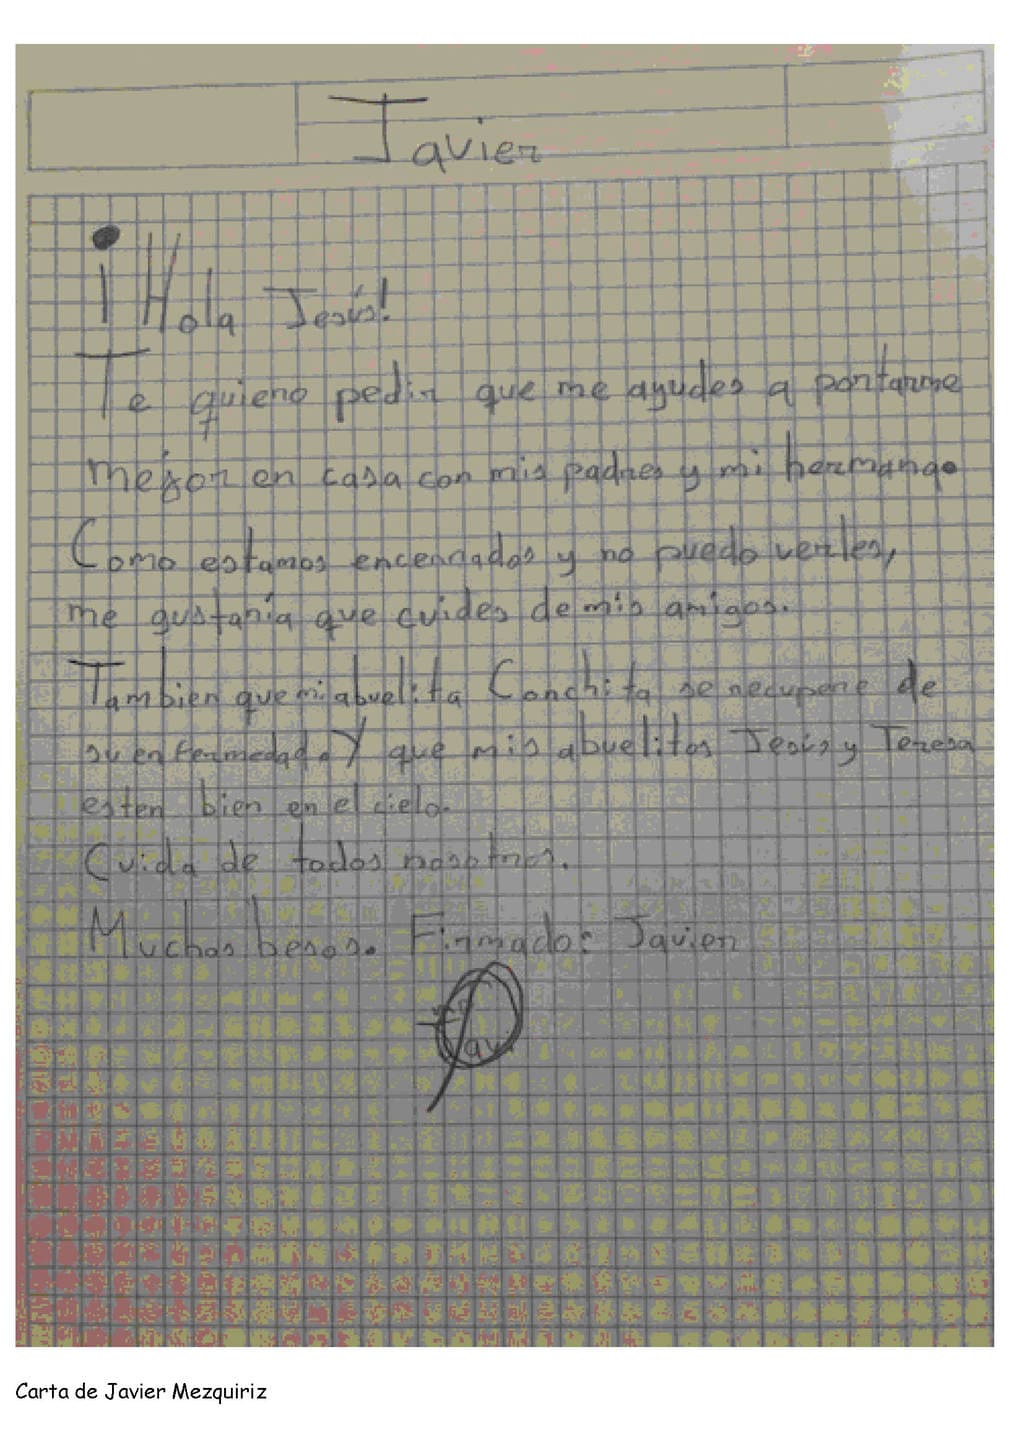 Javier
¡Hola Jesús!
Te quiero pedir que me ayudes a portarme
mejor en casa con mis padres y mi hermano.
Como estamos encerrados y no puedo verles,
me gustaría que cuides de mis amigos.
Tambien que mi abuelita Conchita se recupere de
su enfermedad. Y que mis abuelitos Jesús y Teresa
esten bien en el cielo.
Cuida de todos nosotros.
Muchos besos. Firmado: Javier
Javi
Carta de Javier Mezquiriz